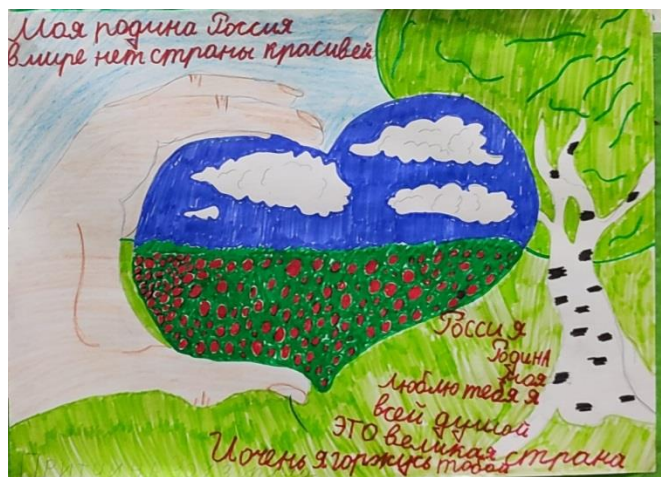 Мая родина Россия
в мире нет страны красивей
Россия
Родина
Моя
люблю тебя я
всей душой
это великая страна
И очень я горжусь тобой